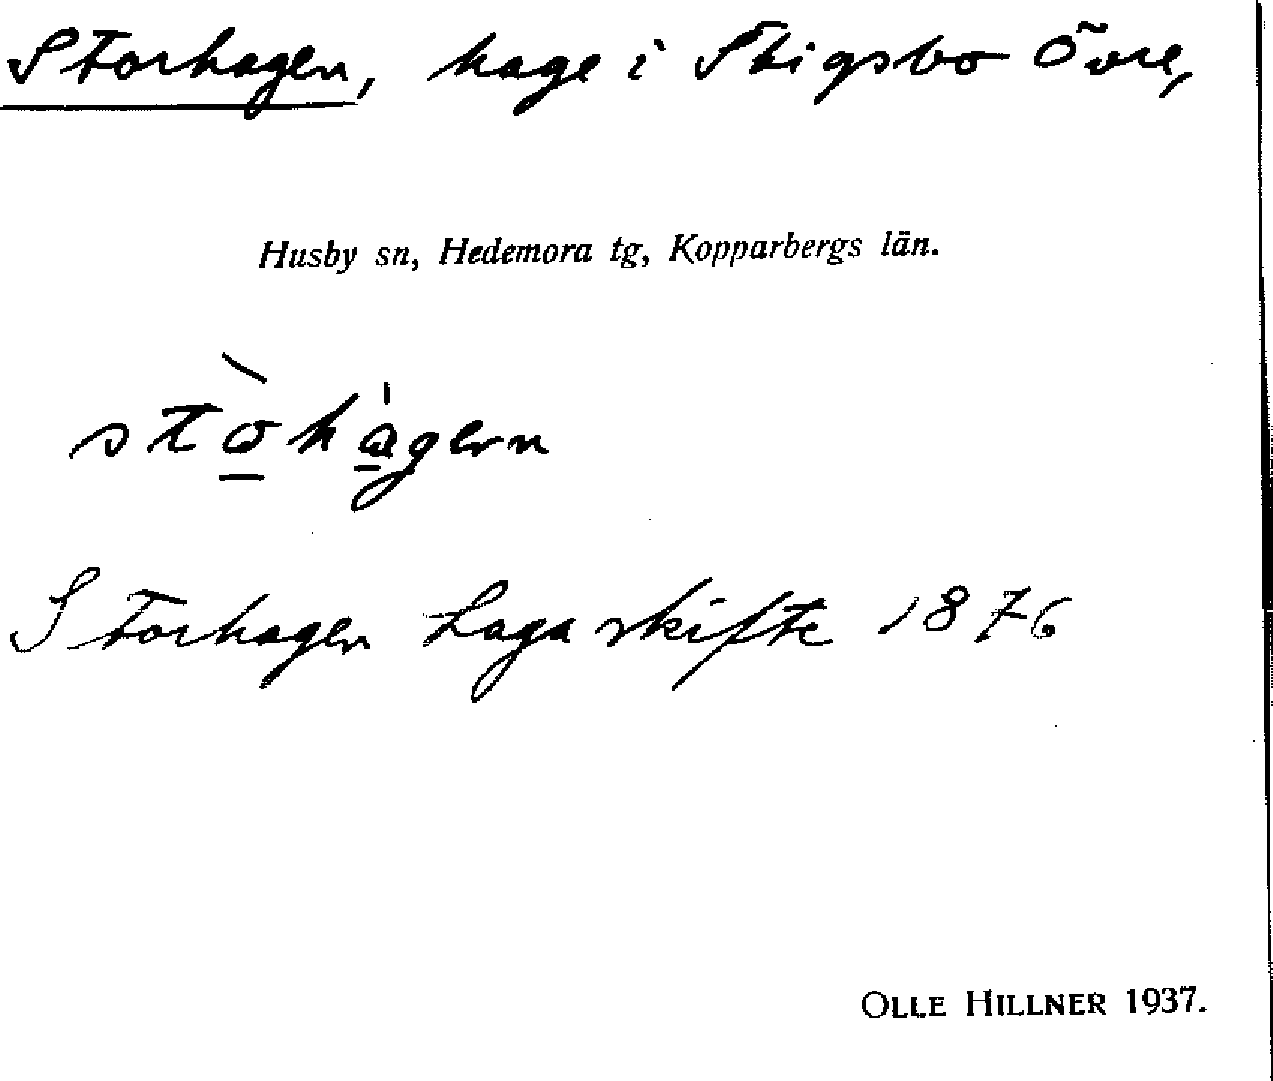 Storhagen, hage i Stigsbo Övre,
Husby sn, Hedemora tg, Kopparbergs län.
Storhagen Laga skifte 1876
OLLE HILLNER 1937.